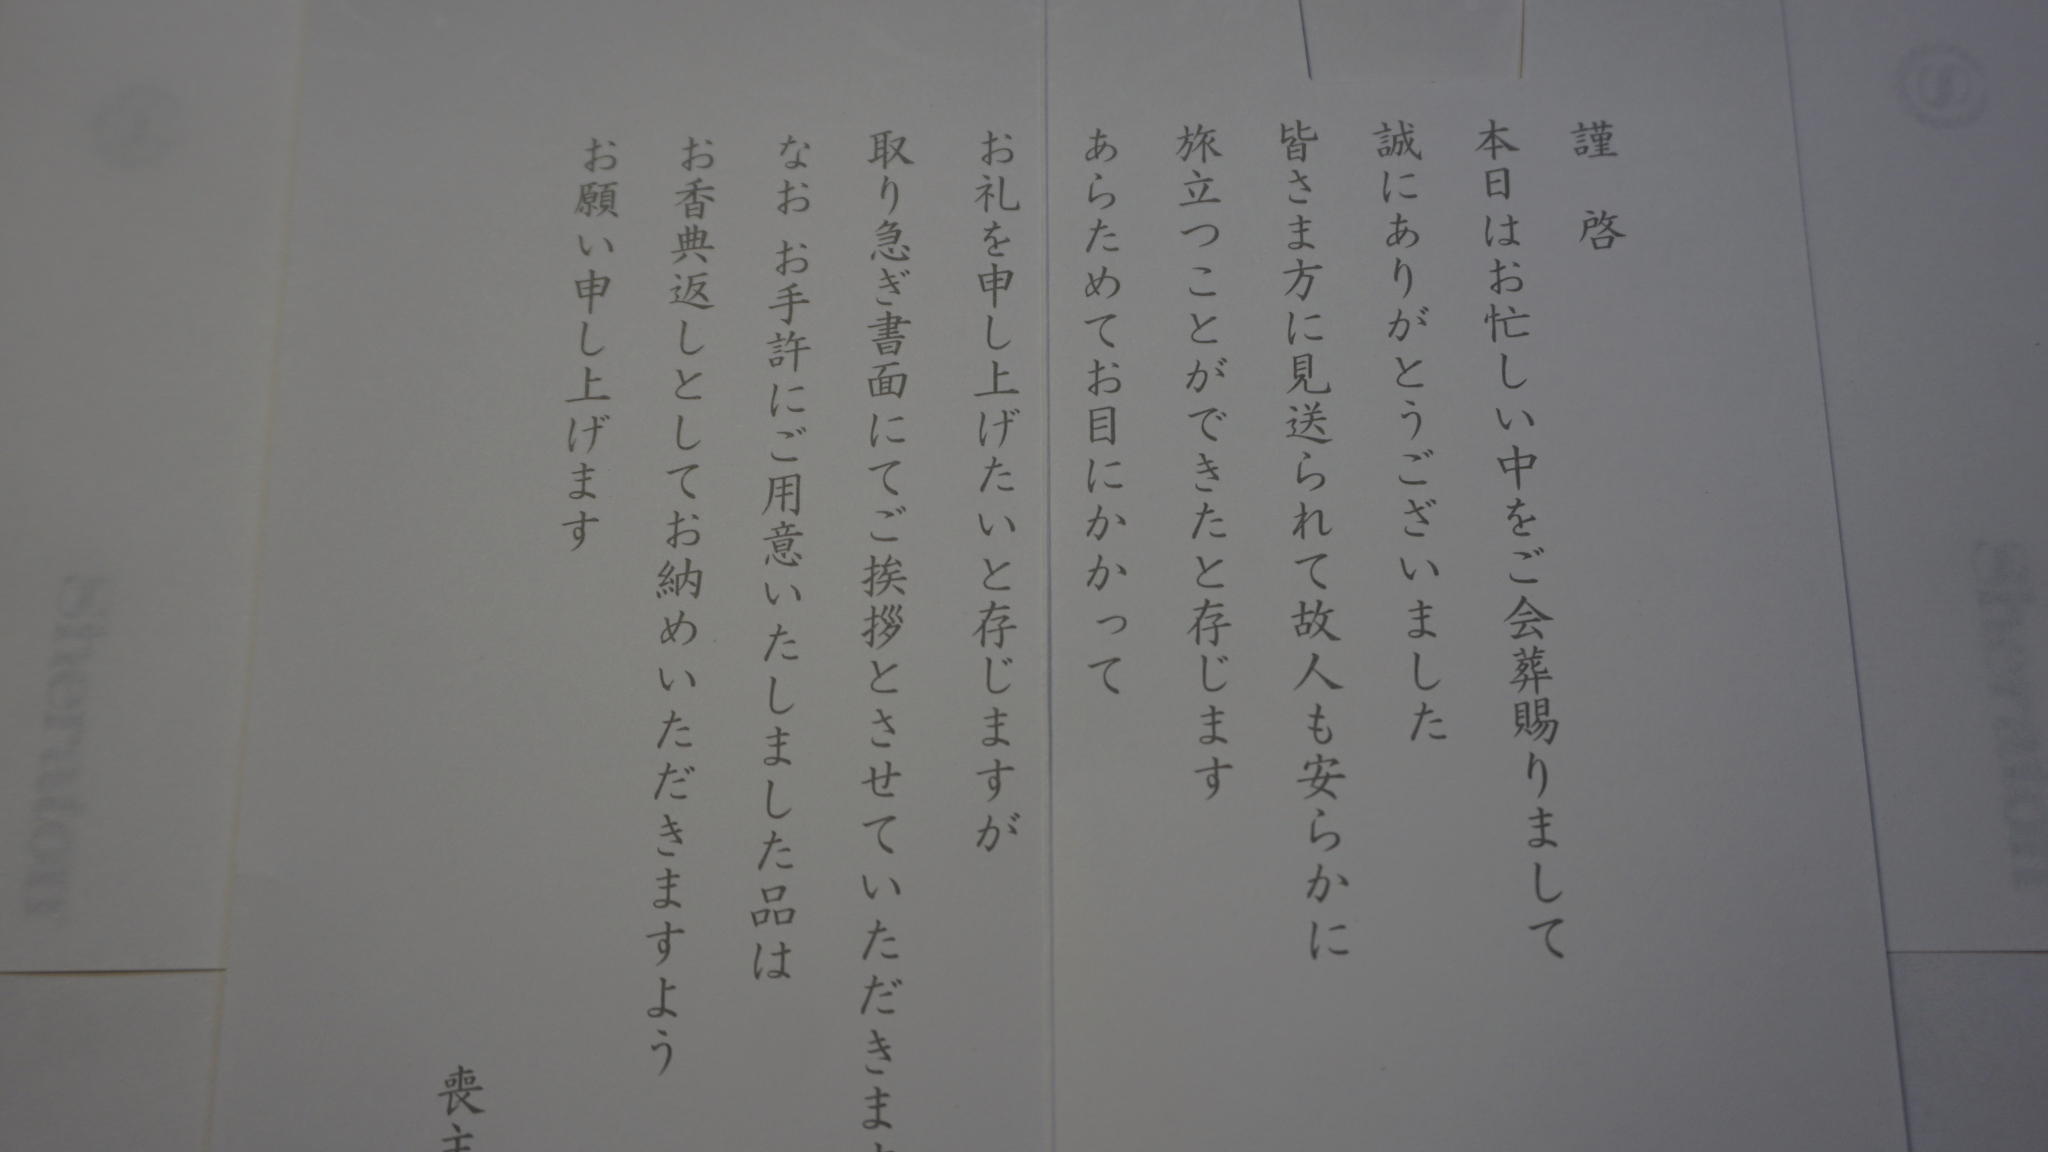 謹 啓
本日はお忙しい中をご会葬賜りまして
誠にありがとうございました
皆さま方に見送られて故人も安らかに
旅立つことができたと存じます
あらためてお目にかかって
お礼を申し上げたいと存じますが
取り急ぎ書面にてご挨拶とさせていただきま
なお お手許にご用意いたしました品は
お香典返しとしてお納めいただきますよう
お願い申し上げます
喪主
Sheraton
Sheraton